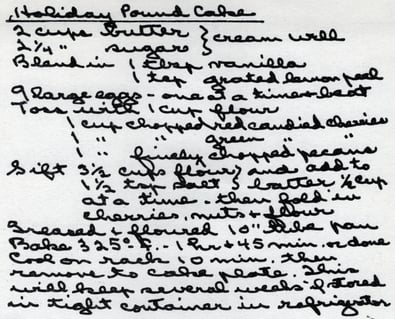 Holiday Pound Cake
2 cups butter } cream well
2 1/4 " sugar }
Blend in 1 tbsp vanilla
1 tsp grated lemon peel
9 large eggs - one at a time + beat
Toss with 1 cup flour
1 cup chopped red candied cherries
1 " " green "
1 " finely chopped pecans
Sift 3 1/2 cups flour } and add to
1 1/2 tsp salt } batter 1/2 cup
at a time. then fold in
cherries, nuts + flour
Greased + floured 10" tube pan
Bake 325° F. - 1 hr + 45 min. or done
Cool on rack 10 min. then
remove to cake plate. This
will keep several weeks if stored
in tight container in refrigerator